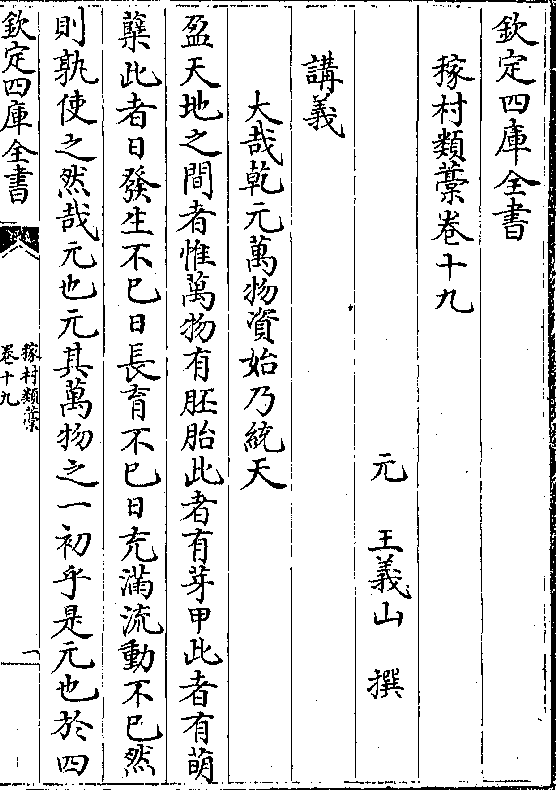 欽定四庫全書
稼村類藳卷十九
元 王義山 撰
講義
大哉乾元萬物資始乃統天
盈天地之間者惟萬物有胚胎此者有芽甲此者有萌
蘖此者日發生不已日長育不已日充滿流動不已然
則孰使之然哉元也元其萬物之一初乎是元也於四
欽定四庫全書
稼村類藳
卷十九
一